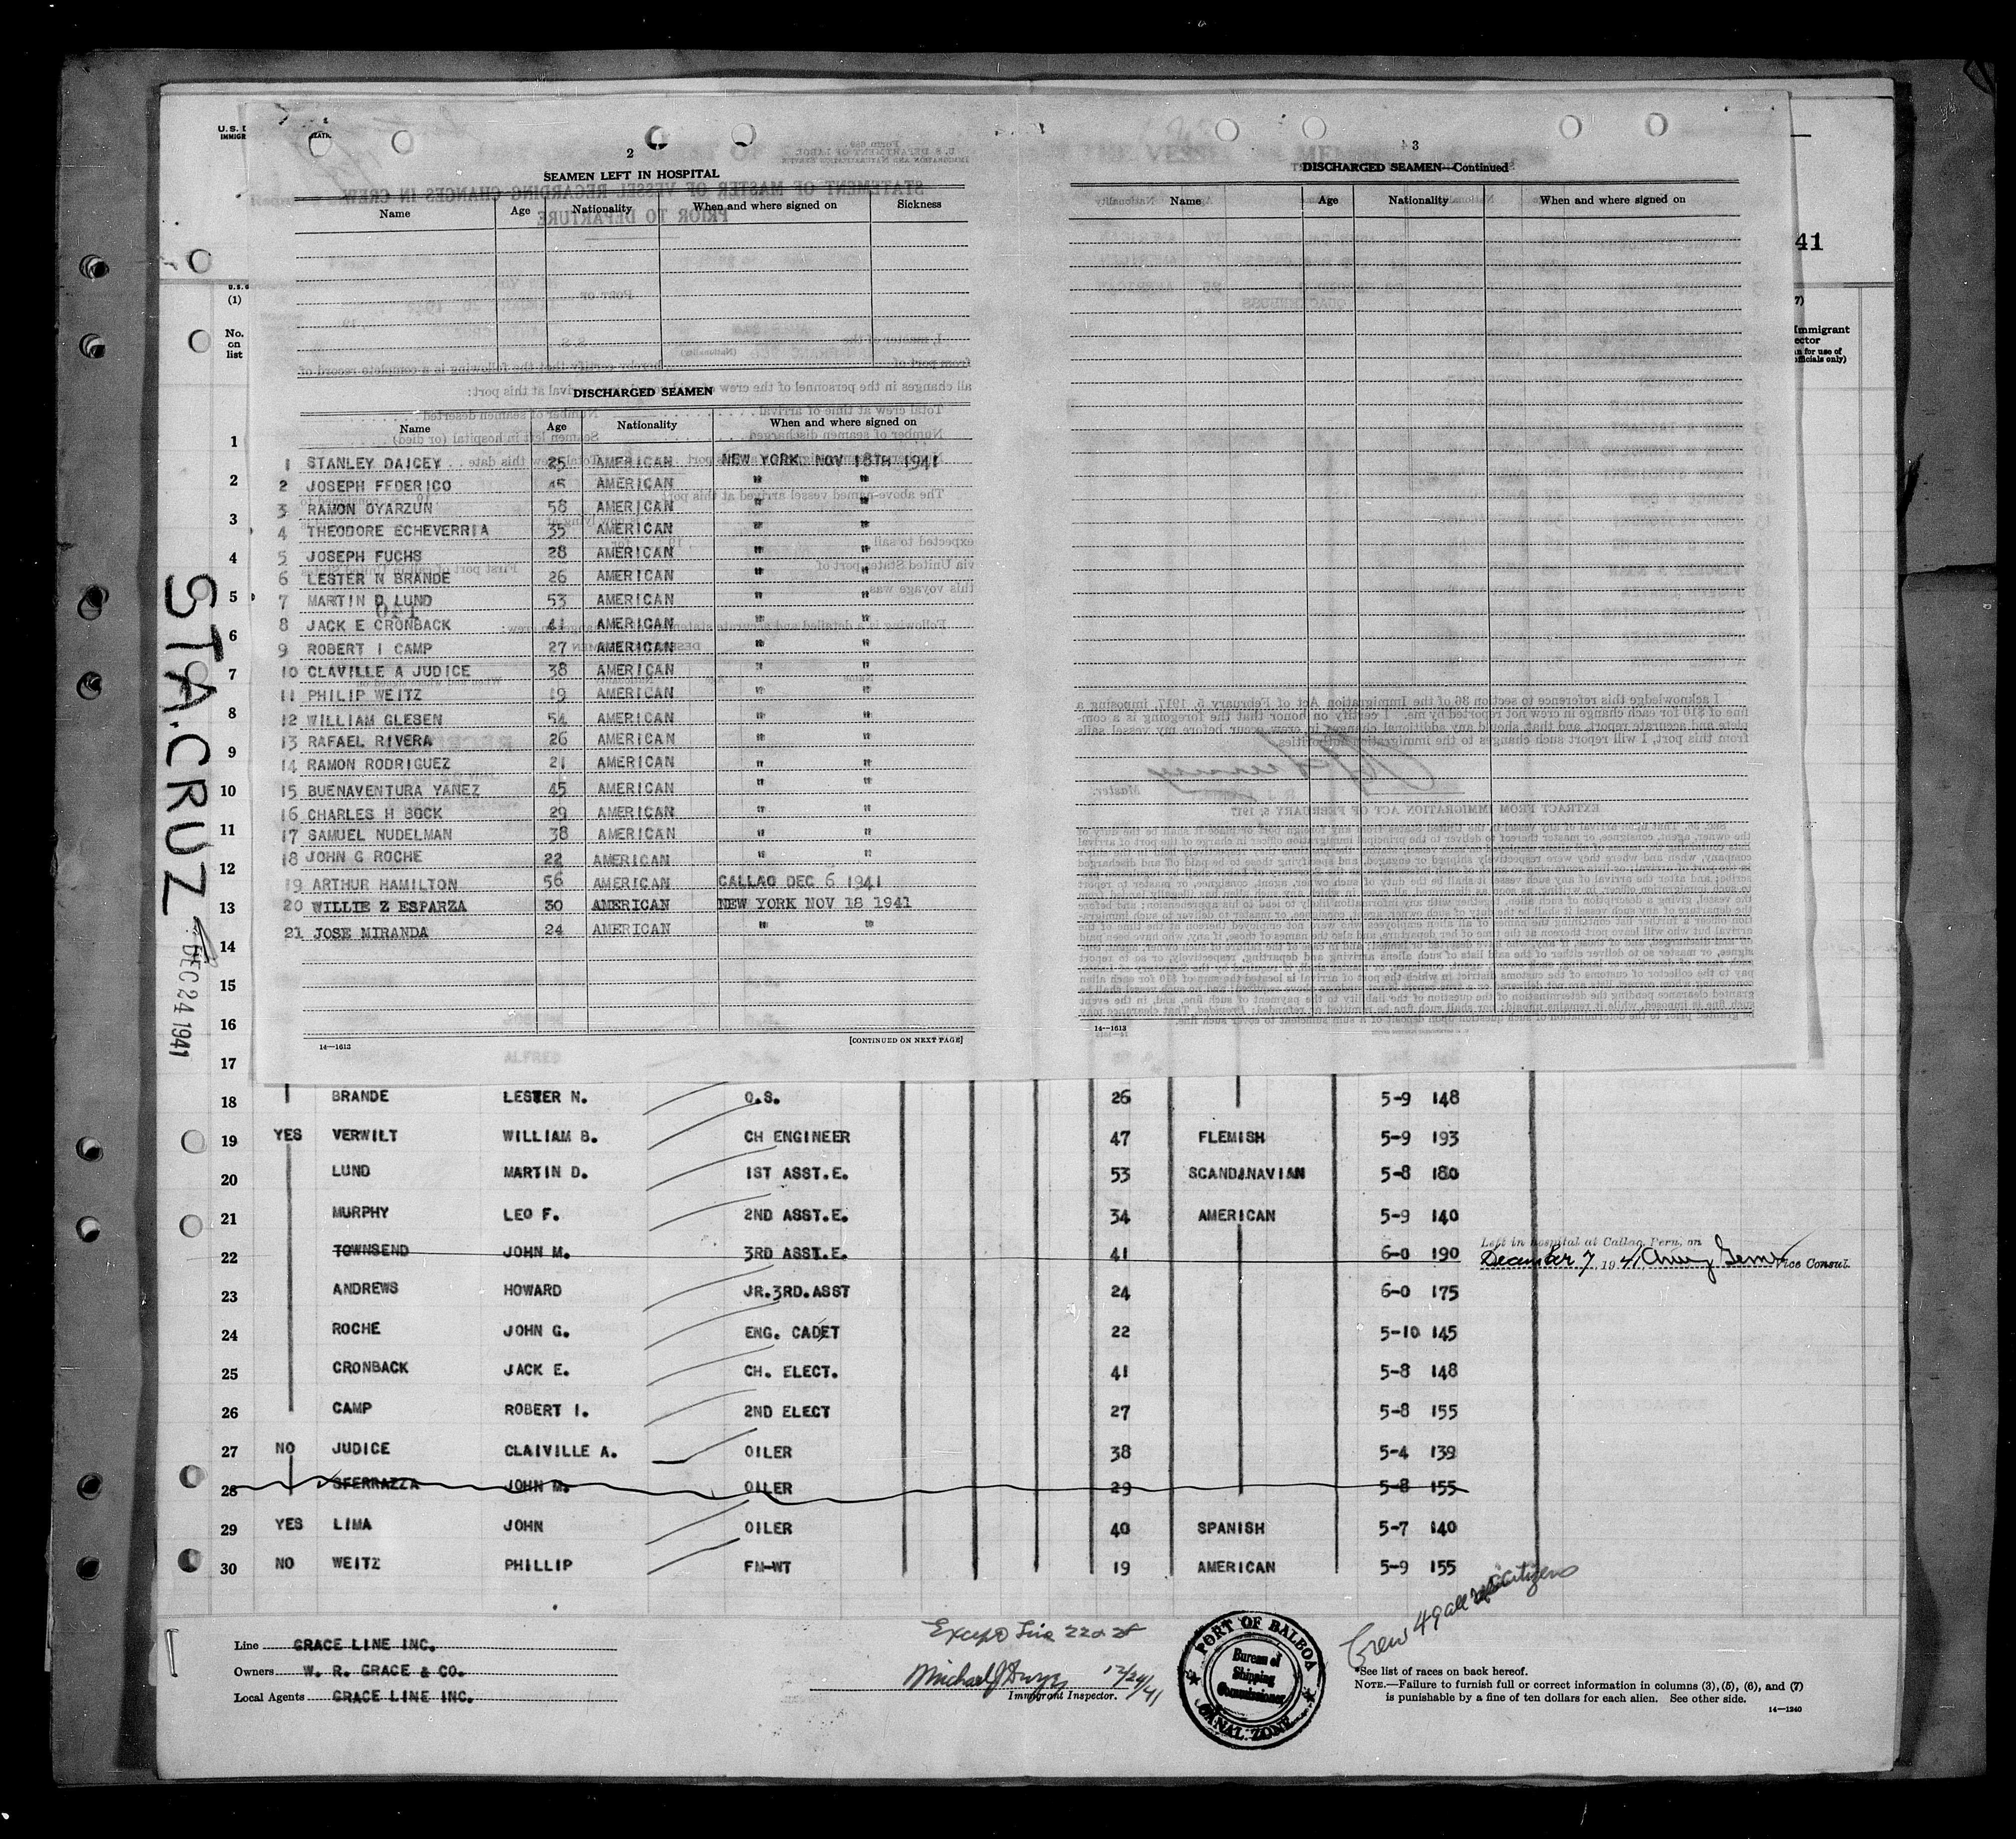 U.S.
IMMIGR
2
SEAMEN LEFT IN HOSPITAL
Name Age Nationality When and where signed on Sickness
DISCHARGED SEAMEN
Name Age Nationality When and where signed on
1 STANLEY DAICEY 25 AMERICAN NEW YORK NOV 18TH 1941
2 JOSEPH FEDERICO 45 AMERICAN " "
3 RAMON OYARZUN 58 AMERICAN " "
4 THEODORE ECHEVERRIA 35 AMERICAN " "
5 JOSEPH FUCHS 28 AMERICAN " "
6 LESTER N BRANDE 26 AMERICAN " "
7 MARTIN D LUND 53 AMERICAN " "
8 JACK E CRONBACK 41 AMERICAN " "
9 ROBERT I CAMP 27 AMERICAN " "
10 CLAVILLE A JUDICE 38 AMERICAN " "
11 PHILIP WEITZ 19 AMERICAN " "
12 WILLIAM GLESEN 54 AMERICAN " "
13 RAFAEL RIVERA 26 AMERICAN " "
14 RAMON RODRIGUEZ 21 AMERICAN " "
15 BUENAVENTURA YANEZ 45 AMERICAN " "
16 CHARLES H BOCK 29 AMERICAN " "
17 SAMUEL NUDELMAN 38 AMERICAN " "
18 JOHN G ROCHE 22 AMERICAN " "
19 ARTHUR HAMILTON 56 AMERICAN CALLAO DEC 6 1941
20 WILLIE Z ESPARZA 30 AMERICAN NEW YORK NOV 18 1941
21 JOSE MIRANDA 24 AMERICAN " "
14—1613 [CONTINUED ON NEXT PAGE]
3
DISCHARGED SEAMEN—Continued
Name Age Nationality When and where signed on
14—1613
41
(1)
No. on list
7)
Immigrant
ector
n for use of
officials only)
1
2
3
4
5
6
7
8
9
10
11
12
13
14
15
16
17
STA. CRUZ DEC 24 1941
18 BRANDE LESTER N. O.S. 26 5-9 148
19 YES VERWILT WILLIAM B. CH ENGINEER 47 FLEMISH 5-9 193
20 LUND MARTIN D. 1ST ASST.E. 53 SCANDINAVIAN 5-8 180
21 MURPHY LEO F. 2ND ASST.E. 34 AMERICAN 5-9 140
22 TOWNSEND JOHN M. 3RD ASST.E. 41 6-0 190 Left in hospital at Callao, Peru, on
December 7, 1941 Vice Consul.
23 ANDREWS HOWARD JR.3RD.ASST 24 6-0 175
24 ROCHE JOHN G. ENG. CADET 22 5-10 145
25 CRONBACK JACK E. CH. ELECT. 41 5-8 148
26 CAMP ROBERT I. 2ND ELECT 27 5-8 155
27 NO JUDICE CLAIVILLE A. OILER 38 5-4 139
28 SFERRAZZA JOHN M. OILER 29 5-8 155
29 YES LIMA JOHN OILER 40 SPANISH 5-7 140
30 NO WEITZ PHILLIP FM-WT 19 AMERICAN 5-9 155
Line GRACE LINE INC.
Owners W. R. GRACE & CO.
Local Agents GRACE LINE INC.
Except Line 22
Michael J Dwyer 12/24/41
Immigrant Inspector.
PORT OF BALBOA
Bureau of
Shipping
Commissioner
CANAL ZONE
Crew 49 all citizens
*See list of races on back hereof.
NOTE.—Failure to furnish full or correct information in columns (3), (5), (6), and (7)
is punishable by a fine of ten dollars for each alien. See other side.
14—1240